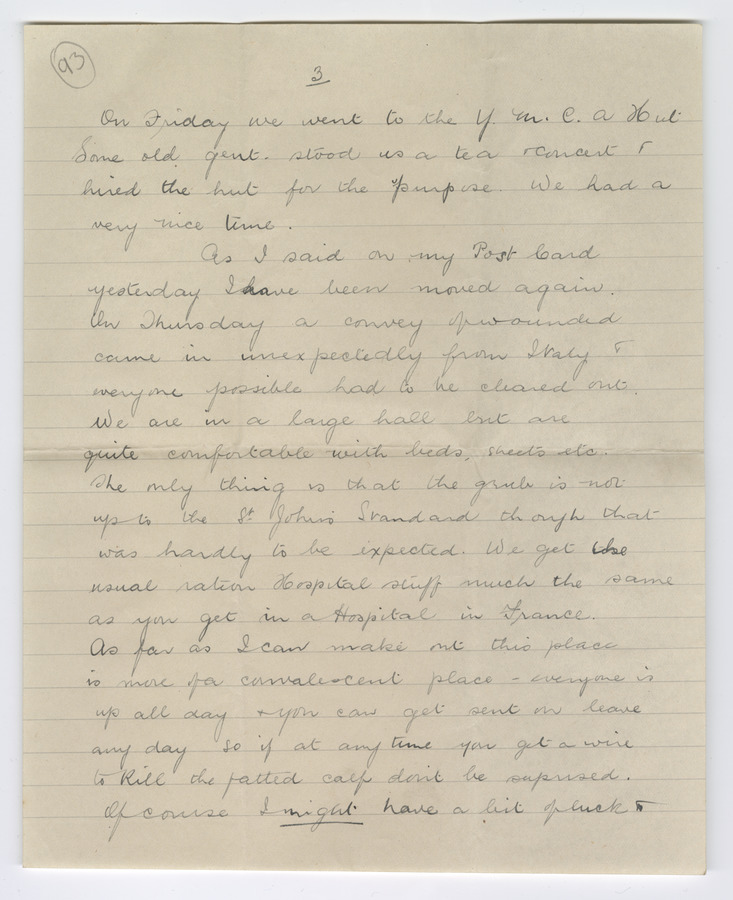 93
3
On Friday we went to the Y. M. C. A Hut
Some old gent. stood us a tea & concert &
hired the hut for the purpose. We had a
very nice time.
As I said on my Post Card
yesterday I have been moved again.
On Thursday a convey of wounded
came in unexpectedly from Italy &
everyone possible had to be cleared out.
We are in a large hall but are
quite comfortable with beds, sheets etc.
The only thing is that the grub is not
up to the St John's Standard though that
was hardly to be expected. We get the
usual ration Hospital stuff much the same
as you get in a Hospital in France.
As far as I can make out this place
is more of a convalescent place - everyone is
up all day & you can get sent on leave
any day so if at any time you get a wire
to kill the fatted calf don't be suprised.
Of course I might have a bit of luck &